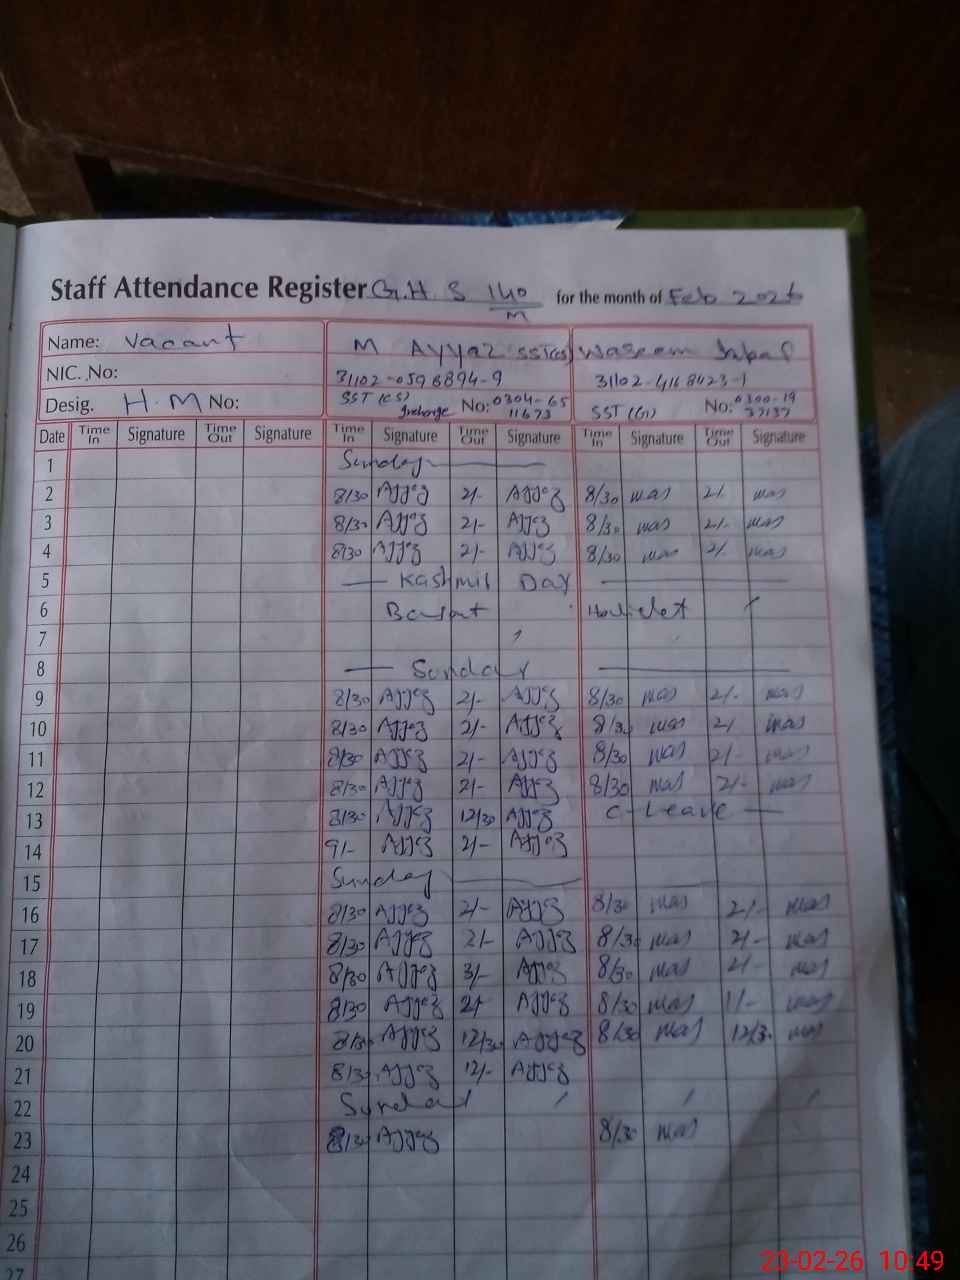 Staff Attendance Register G.H.S 140/M for the month of Feb 2026
Name: Vacant M Ayyaz SST(CS) Waseem
NIC. No: 31102-0598894-9 31102-4168423-1
Desig. H.M No: SST (CS) Incharge No: 0304-65 11673 SST (G) No: 0300-19 37137
Date Time In Signature Time Out Signature Time In Signature Time Out Signature Time In Signature Time Out Signature
1 Sunday
2 8/30 Ayyaz 2/- Ayyaz 8/30 was 2/- was
3 8/30 Ayyaz 2/- Ayyaz 8/30 was 2/- was
4 8/30 Ayyaz 2/- Ayyaz 8/30 was 2/- was
5 Kashmir Day
6 Basant
7
8 Sunday
9 8/30 Ayyaz 2/- Ayyaz 8/30 was 2/- was
10 8/30 Ayyaz 2/- Ayyaz 8/30 was 2/- was
11 8/30 Ayyaz 2/- Ayyaz 8/30 was 2/- was
12 8/30 Ayyaz 2/- Ayyaz 8/30 was 2/- was
13 8/30 Ayyaz 12/30 Ayyaz C-Leave
14 9/- Ayyaz 2/- Ayyaz
15 Sunday
16 8/30 Ayyaz 2/- Ayyaz 8/30 was 2/- was
17 8/30 Ayyaz 2/- Ayyaz 8/30 was 2/- was
18 8/30 Ayyaz 3/- Ayyaz 8/30 was 2/- was
19 8/30 Ayyaz 2/- Ayyaz 8/30 was 1/- was
20 8/30 Ayyaz 12/30 Ayyaz 8/30 was 12/30 was
21 8/30 Ayyaz 12/- Ayyaz
22 Sunday
23 8/30 Ayyaz 8/30 was
24
25
26
27
23-02-26 10:49